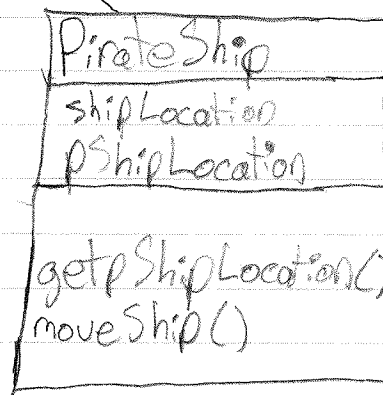 PirateShip
shipLocation
pShipLocation
getpShipLocation()
moveShip()